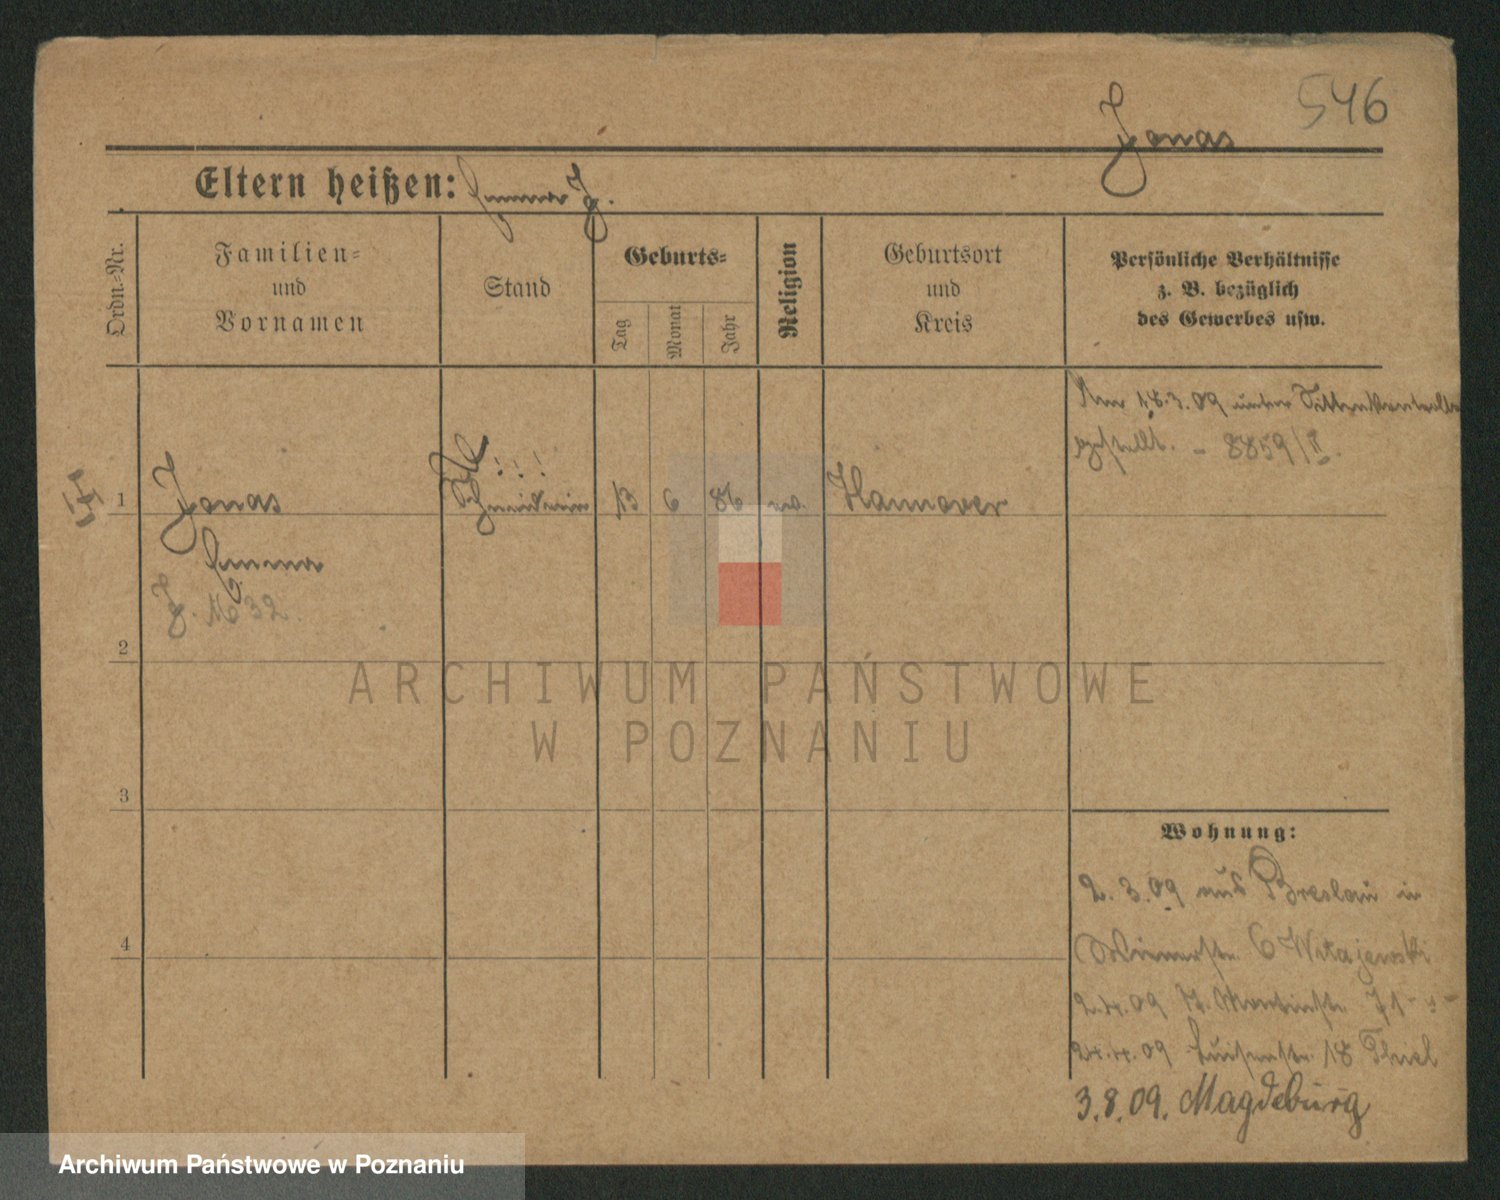 546
Jonas
Eltern heißen: Emma J.
Ordn.=Nr.
Familien=
und
Vornamen
Stand
Geburts=
Tag
Monat
Jahr
Religion
Geburtsort
und
Kreis
Persönliche Verhältnisse
z. B. bezüglich
des Gewerbes usw.
Am 18.3.09 unter Sittenkontrolle
gestellt. - 8859/II.
1
Jonas
! ! !
Schneiderin
13
6
86
ev.
Hannover
Emma
J. No 32.
2
ARCHIWUM PAŃSTWOWE
W POZNANIU
3
Wohnung:
2. 3. 09 aus Breslau in
4
Wienerstr. 6 Witajewski
2.4.09 St. Martinstr. 71
24.4.09 Luisenstr. 18 Thiel
3.8.09. Magdeburg
Archiwum Państwowe w Poznaniu